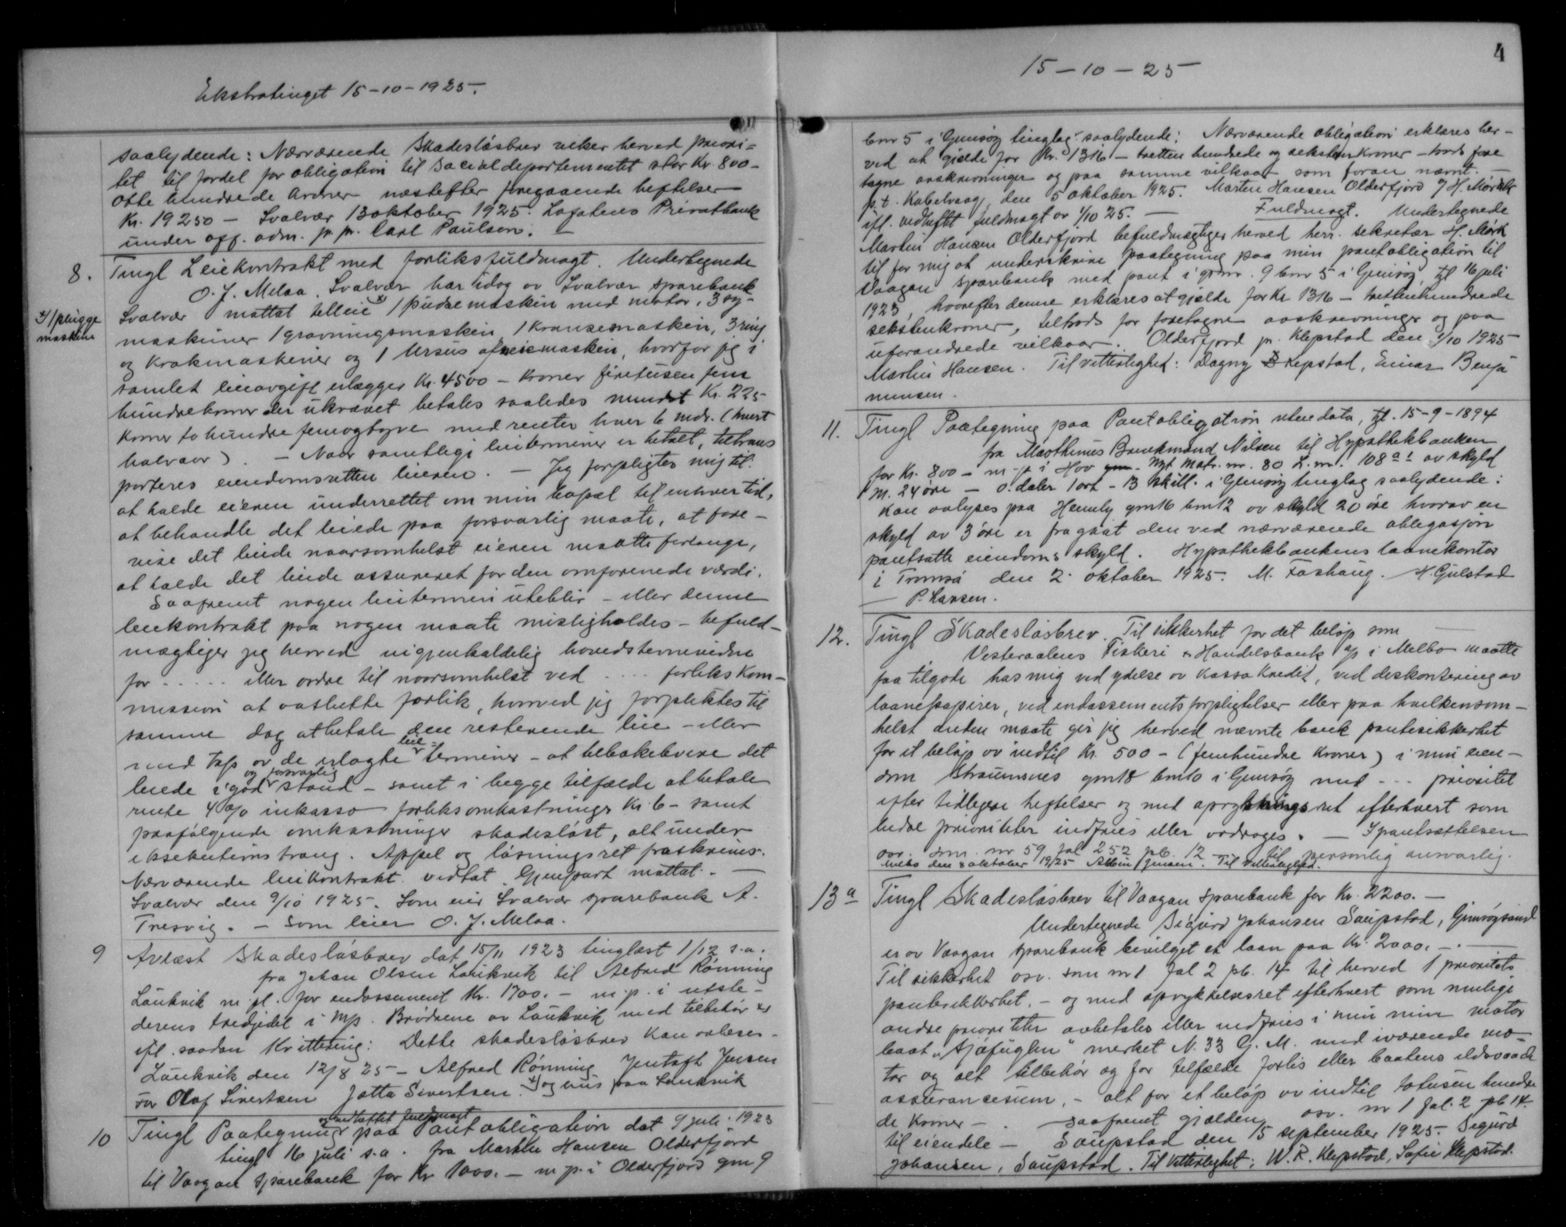 Ekstratinget 15-10-1925.
saalydende: Nærværende Skadesløsbrev viker herved priori=
tet til fordel for obligation til Socialdepartementet stor Kr. 800-
otte hundrede kroner næstefter foregaaende heftelser
Kr. 19250 - Svolvær 13 oktober 1925. Lofotens Privatbank
under off. adm. pr. pr. Carl Paulsen.
8. Tingl Leiekontrakt med forliksfuldmagt. Undertegnede
O. J. Melaa, Svolvær har idag av Svolvær sparebank
Svolvær mottat tilleie x) 1 pudsemaskin med motor, 3 sy-
x) 1 pluggemaskine
maskiner 1 gravningsmaskin, 1 kransemaskin, 3 ring
og Krokmaskiner og 1 Ursus maskin, hvorfor jeg i
samlet leieavgift erlægger Kr. 4500 - Kroner firetusen fem
hundrekroner der ukrævet betales saaledes mindst Kr. 225
Kroner to hundre femogtyve med renter hver 6 mdr. (hvert
halvaar). - Naar samtlige leieterminer er betalt, trans
porteres eiendomsretten leieren. - Jeg forpligter mig til
at holde eieren underrettet om min bopæl til enhver tid,
at behandle det leiede paa forsvarlig maate, at fore-
vise det leiede naarsomhelst eieren maatte forlange,
at holde det leiede assureret for den omforenede værdi.
Saafremt nogen leietermin utebliv - eller denne
leiekontrakt paa nogen maate misligholdes - befuld-
mægtiger jeg herved uigjenkaldelig hovedstevnevidne
for ..... eller ordre til naarsomhelst ved .... forlikskom-
mission at vedta forlik, hvorved jeg forpliktes til
samme dag at betale den resterende leie - eller
med tap av de erlagte leie-terminer - at tilbakelevere det
leiede i god og forsvarlig stand - samt i begge tilfælde at betale
rente 4% inkasso forliksomkostninger Kr. 6 - samt
paafølgende omkostninger skadesløst, alt under
eksekutionstvang. Appel og løsningsret fraskrives.
Nærværende leiekontrakt vedtat Gjenpart mottat. -
Svolvær den 9/10 1925. Som eier Svolvær sparebank A.
Tresvig. - Som leier O. J. Melaa.
9 Avlæst Skadesløsbrev dat 15/11 1923 tinglæst 1/12 s.a.
fra Johan Olsen Laukvik til Alfred Rønning
Laukvik m. fl. for endossement Kr. 1700. - m. p. i utste-
derens tredjedel i m/p. Brødrene av Laukvik med tilbehør
ifl. saadan Kvittering: Dette skadesløsbrev kan avleses.
Laukvik den 12/8 25 - Alfred Rønning Jentoft Jensen
Olaf Sivertsen Jetta Sivertsen. x) og hus paa Laukvik
10 Tingl Paategning og vedheftet fuldmagt paa Pantobligation dat 9 juli 1923
tingl 16 juli s.a. fra Martin Hansen Olderfjord
til Vaagan sparebank for Kr 1000. - m. p. i Olderfjord gnr 9
15-10-25
4
bnr 5 i Gimsøy tinglag saalydende: Nærværende obligation erklæres her-
ved at gjelde for Kr. 1316 - tretten hundrede og seksten Kroner - tross fore
tagne avskrivninger og paa samme vilkaar som foran nævnt. -
p.t. Kabelvaag, den 5 oktober 1925. Martin Hansen Olderfjord H. Mørk
ifl. vedheftet fuldmagt av 1/10 25. - Fuldmagt. Undertegnede
Martin Hansen Olderfjord befuldmægtiger herved herr. sekretær H. Mørk
til for mig at underskrive paategning paa min pantobligation til
Vaagan sparebank med pant i gnr. 9 bnr 5 i Gimsøy, tgl 16 juli
1923, hvorefter denne erklæres at gjelde for Kr 1316 - trettenhundrede
sekstenkroner, tiltrods for foretagne avskrivninger og paa
uforandrede vilkaar. Olderfjord pr. Klepstad den 1/10 1925
Martin Hansen. Til vitterlighet: Dagny Klepstad, Einar Benja
minsen.
11. Tingl Paategning paa Pantobligation uten data, tgl. 15-9-1894
fra Marthinus Normand Nilsen til Hypothekbanken
for Kr. 800 - m. p. i Hov Nyt Matr. nr. 80 L.nr. 108 a1 av skyld
M. 24 øre - 0. daler 1 ort - 13 skill. i Gimsøy tinglag saalydende:
Kan avlyses paa Heimly gnr 16 bnr 12 av skyld 20 øre hvorav en
skyld av 3 øre er fragaat den ved nærværende obligasjon
pantsatte eiendoms skyld. Hypothekbankens laanekontor
i Tromsø den 2. oktober 1925. M. Foshaug. H. Gjulstad
P. Larsen.
12. Tingl Skadesløsbrev. Til sikkerhet for det beløp som
Vesteraalens Fiskeri & Handelsbank a/s i Melbo maatte
faa tilgode hos mig ved ydelse av Kassakredit, ved diskontering av
laanepapirer, ved endossementsforpligtelser eller paa hvilkensom-
helst anden maate gir jeg herved nævnte bank pantesikkerhet
for et beløp av indtil Kr. 500 - (femhundre Kroner) i min eien-
dom Straumsnes gnr 18 bnr 10 i Gimsøy med ... prioritet
efter tidligere heftelser og med oprykningsret efterhvert som
bedre prioriteter indfries eller avdrages. - I pantsættelsen
osv. som nr 59 fol 252 pb. 12 - til personlig ansvarlig.
Melbo den 3 oktober 1925 Albin Jensen. Til vitterlighet.
13a Tingl Skadesløsbrev til Vaagan sparebank for Kr. 2200. -
Undertegnede Sigurd Johansen Saupstad, Gimsøysund
er av Vaagan sparebank bevilget et laan paa Kr. 2000. -
Til sikkerhet osv. som nr 1 fol 2 pb. 14 til herved 1 prioritets
pantesikkerhet. - og med oprykkelsesret efterhvert som mulige
andre prioriteter avbetales eller indfries i min min motor
baat „Sjøfuglen" merket N. 33 G. M. med iværende mo-
tor og alt tilbehør og for tilfælde forlis eller baatens ildsvaade
assurancesum, - alt for et beløp av indtil totusen tohundre
de Kroner - . Saafremt gjælden osv. nr 1 fol. 2 pb 14.
til eiendele - Saupstad den 15 september 1925 Sigurd
Johansen, Saupstad. Til Vitterlighet: W. R. Klepstad, Sofie Klepstad.